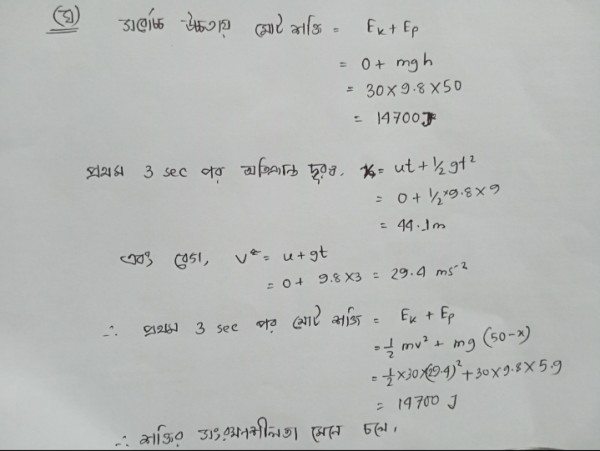 (ঘ) সর্বোচ্চ উচ্চতায় মোট শক্তি = Eₖ + Eₚ
= 0 + mgh
= 30×9.8×50
= 14700J
প্রথম 3 sec পর অতিক্রান্ত দূরত্ব, x = ut + ½ gt²
= 0 + ½×9.8×9
= 44.1m
এবং বেগ, v = u + gt
= 0 + 9.8×3 = 29.4 ms⁻²
∴ প্রথম 3 sec পর মোট শক্তি = Eₖ + Eₚ
= ½ mv² + mg (50-x)
= ½×30×(29.4)² + 30×9.8×5.9
= 14700 J
∴ শক্তির সংরক্ষণশীলতা মেনে চলে।